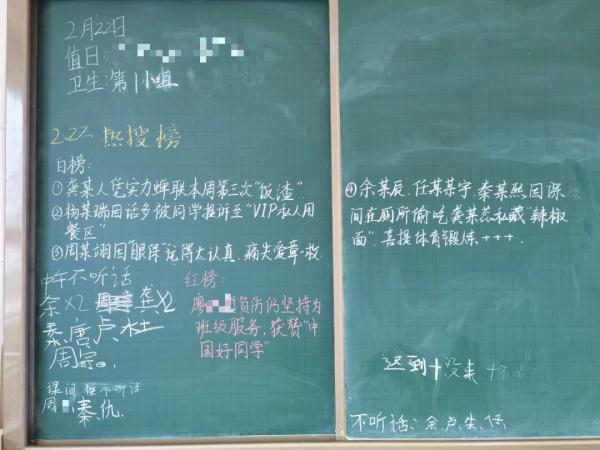 2月22日
值日:
卫生:第1小组
2.22 热搜榜
白榜:
①龚某人凭实力蝉联本周第三次“饭渣”
②杨某瑞因话多被同学投诉至“VIP私人用
餐区”
③周某翊因“眼保”玩得太认真,痛失爱章·枚
中午不听话
余X2 龚X2
秦、唐、卢、杜
周宗。
课间 不听话
周 秦、仇
红榜:
廖 负伤仍坚持为
班级服务,获赞“中
国好同学”
④余某辰、任某某宇、秦某熙因课
间在厕所偷吃龚某忽私藏“辣椒
面”,喜提体育锻炼+++.
迟到+没来+
不听话、余、卢、朱、任